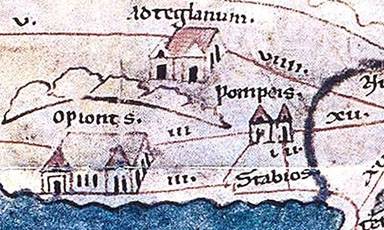 Ad teglanum.
v.
viiii.
Pompeis.
xii.
Oplont s.
iii
i ii
iii.
Stabios